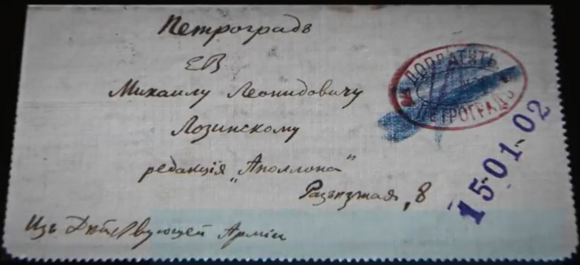 Петроградъ
ЕВ
Михаилу Леонидовичу
Лозинскому
редакція „Аполлона“
Разъѣзжая, 8
Изъ Дѣйствующей Арміи
ДОПЛАТИТЬ
ПЕТРОГРАДЪ
15-01-02